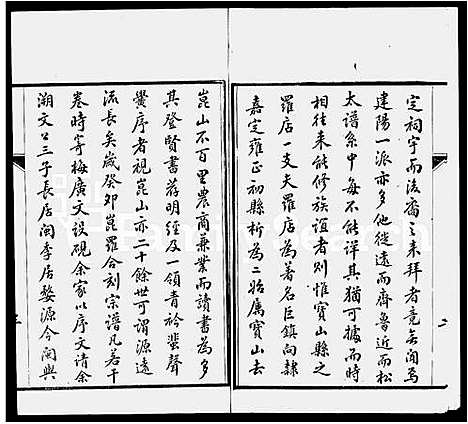 定祠宇而法裔之来拜者竟無聞焉
建陽一派亦多他徙遠而齊魯近而松
太譜系中每不能詳其猶可據而時
相往来能修族誼者則惟寶山縣之
羅店一支夫羅店為著名巨鎮向隸
嘉定雍正初縣析為二始属寶山去
崑山不百里農商兼業而讀書為多
其登賢書薦明經及一領青衿蜚聲
黌序者視崑山亦二十餘世可謂源遠
流長矣歲癸卯崑羅合刻宗譜凡若干
卷時寄梅廣文設硯余家以序文請余
溯文公三子長居閩季居婺源今閩與